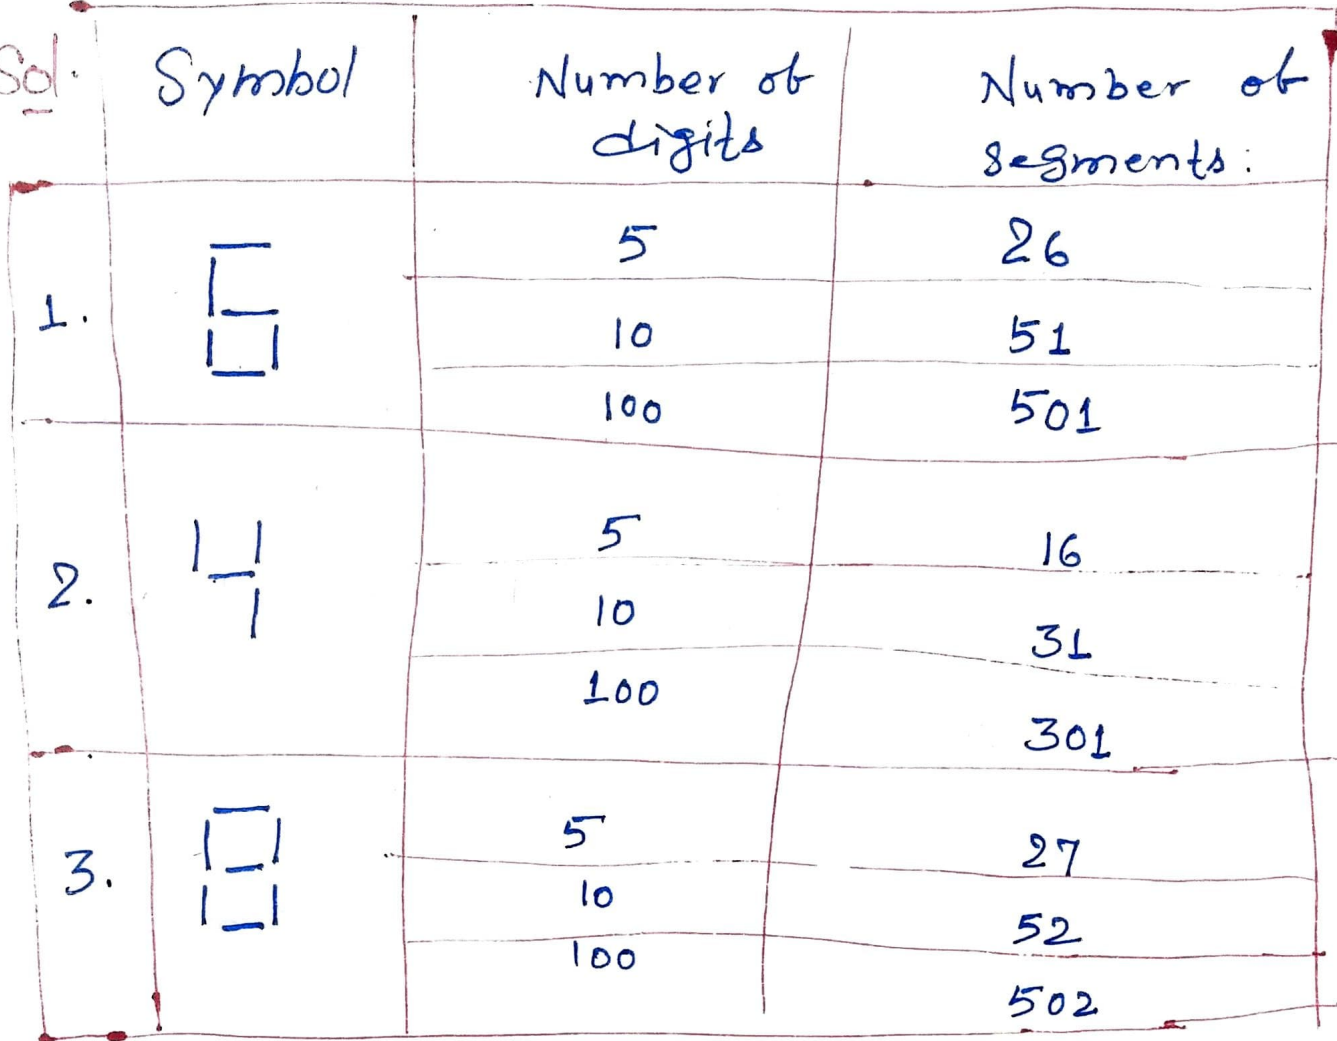 Sol. Symbol Number of digits Number of segments:
1. 6 5 26
10 51
100 501
2. 4 5 16
10 31
100 301
3. 8 5 27
10 52
100 502